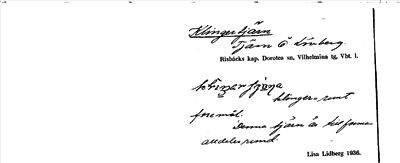 Klingertjärn
Tjärn Ö Lövberg.
Risbäcks kap. Dorotea sn, Vilhelmina tg. Vbt. l.
klinger runt
föremål.
Denna tjärn är till formen
alldeles rund.
Lisa Lidberg 1936.